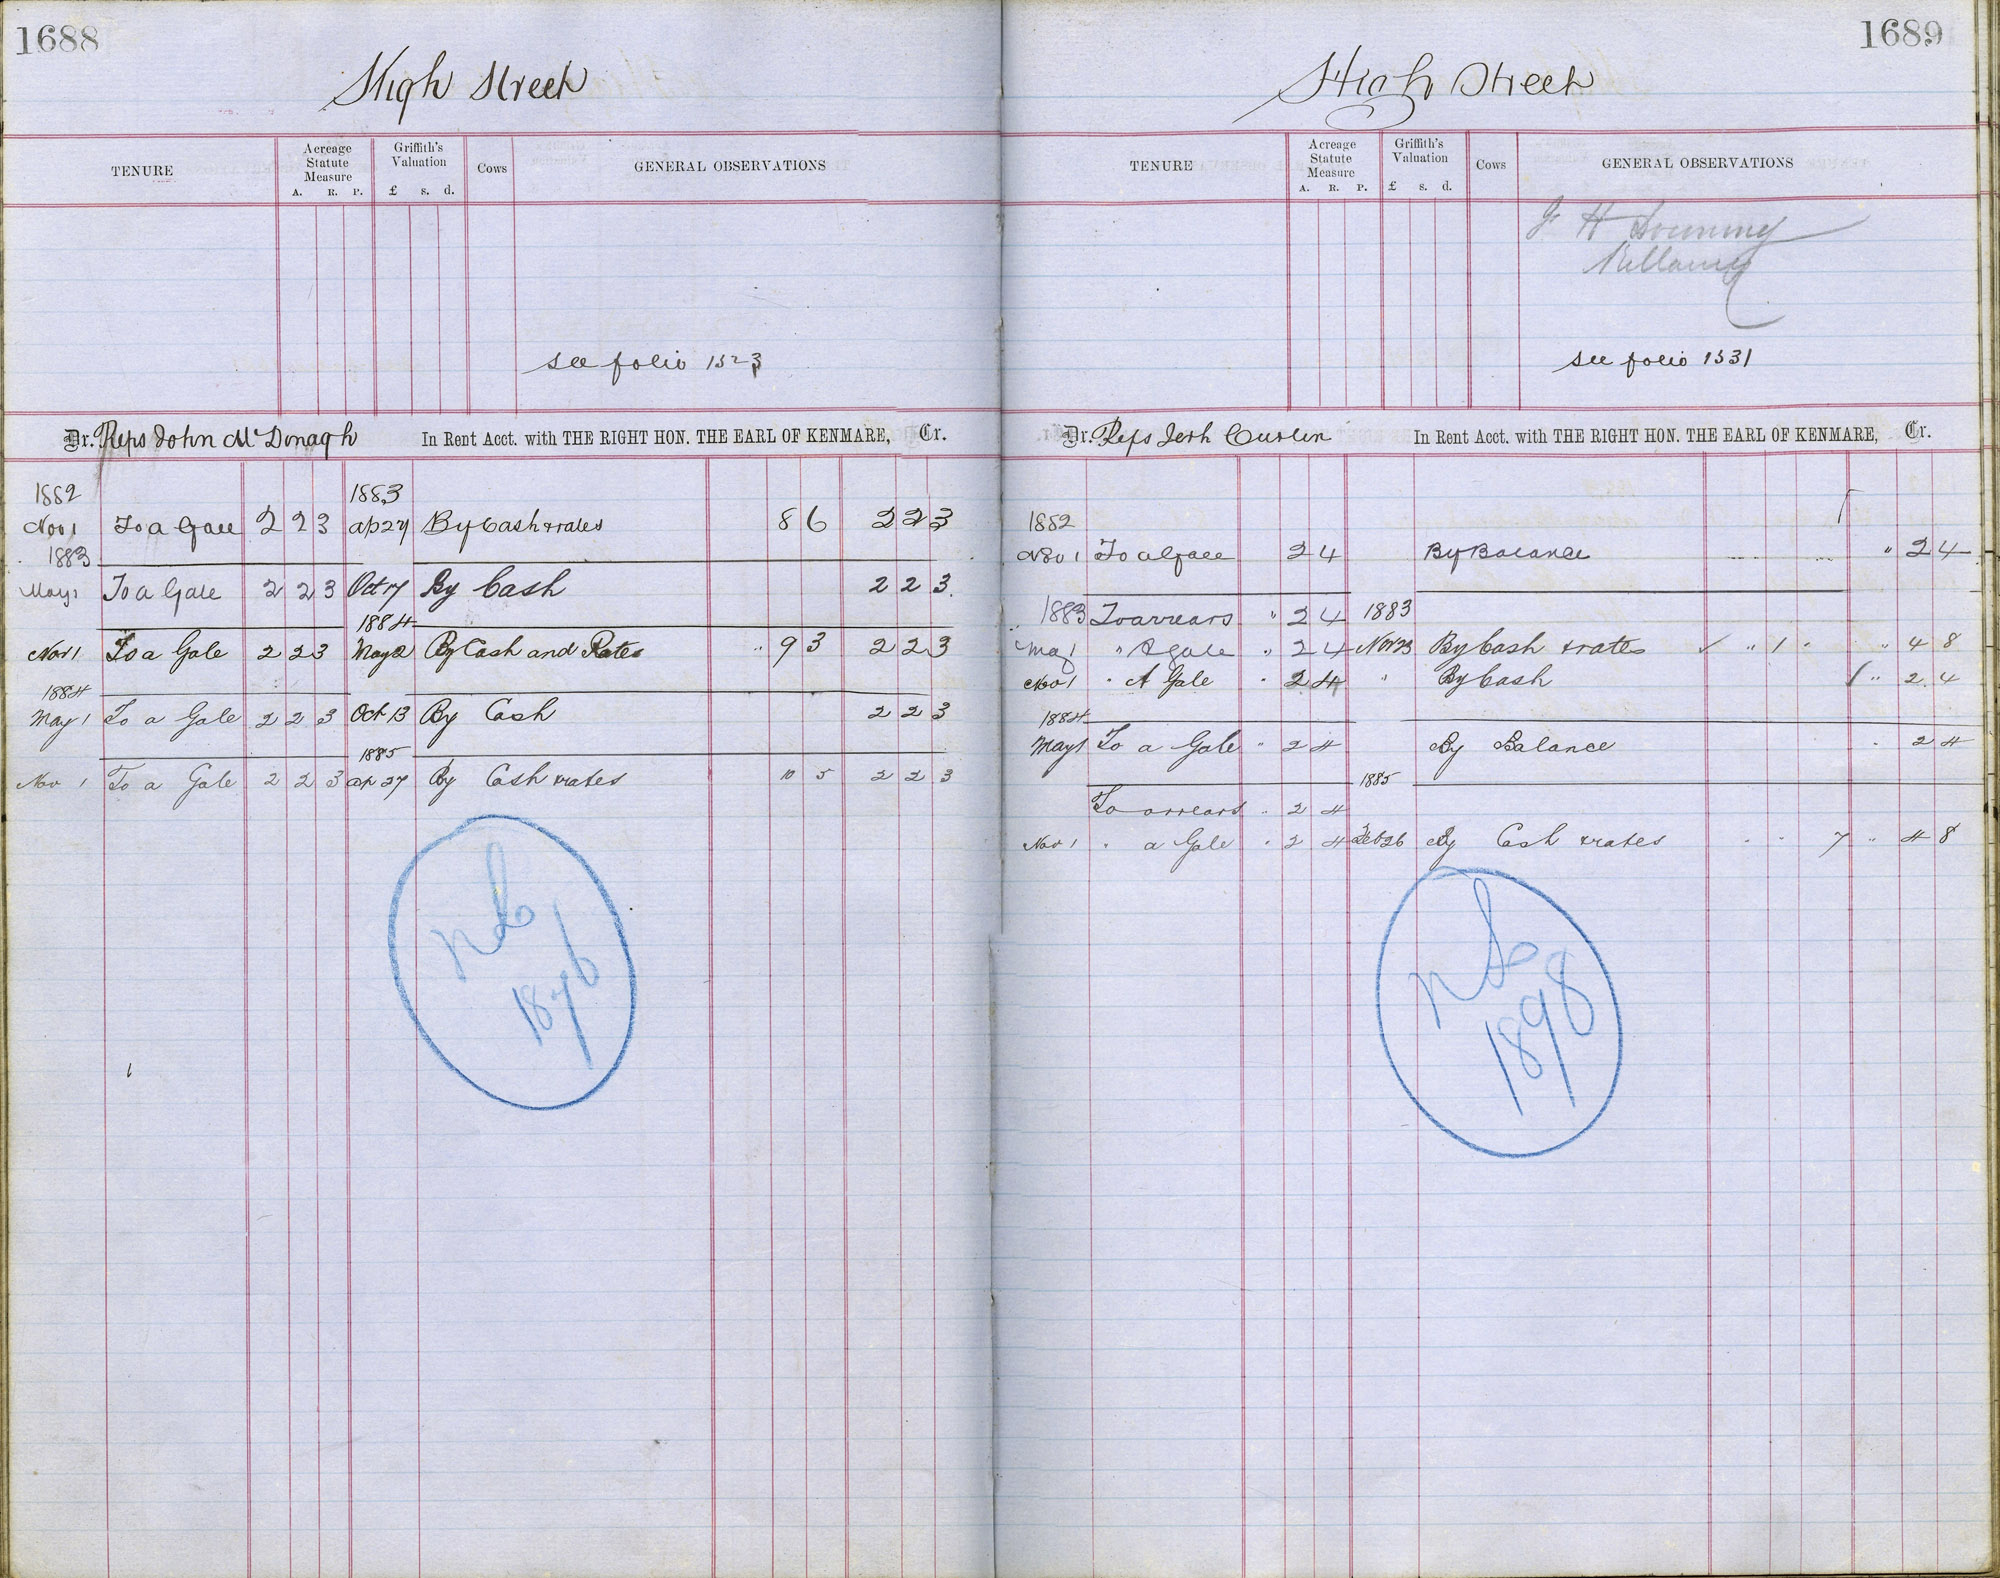 1688
High Street
TENURE Acreage Statute Measure Griffith's Valuation Cows GENERAL OBSERVATIONS
A. R. P. £ s. d.
see folio 1523
Dr. Reps John McDonagh In Rent Acct. with THE RIGHT HON. THE EARL OF KENMARE, Cr.
1882 1883
Nov 1 To a Gale 2 2 3 Ap 27 By Cash & rates 8 6 2 2 3
1883
May 1 To a Gale 2 2 3 Oct 17 By Cash 2 2 3
1884
Nov 1 To a Gale 2 2 3 May 2 By Cash and Rates " 9 3 2 2 3
1884
May 1 To a Gale 2 2 3 Oct 13 By Cash 2 2 3
1885
Nov 1 To a Gale 2 2 3 Ap 27 By Cash & rates 10 5 2 2 3
1876
1689
High Street
TENURE Acreage Statute Measure Griffith's Valuation Cows GENERAL OBSERVATIONS
A. R. P. £ s. d.
H Downing
Killarney
see folio 1531
Dr. Reps Jerh Curlin In Rent Acct. with THE RIGHT HON. THE EARL OF KENMARE, Cr.
1882
Nov 1 To a Gale 2 4 By Balance " 2 4
1883 To arrears " 2 4 1883
May 1 " A gale " 2 4 Nov 23 By Cash & rates " 1 " " 4 8
Nov 1 " A Gale " 2 4 " By Cash " 2 4
1884
May 1 To a Gale " 2 4 By Balance " 2 4
1885
To arrears " 2 4
Nov 1 " a Gale " 2 4 Feb 26 By Cash & rates " " 7 " 4 8
1898